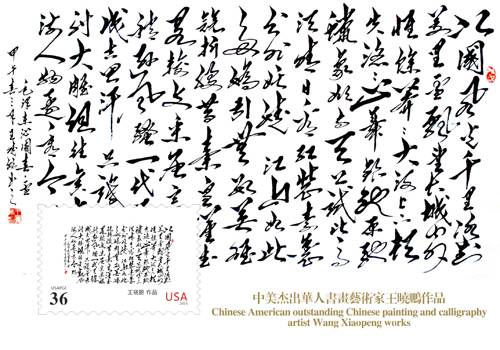 北國風光千里冰封
萬里雪飄望長城內外
惟餘莽莽大河上下頓
失滔滔山舞銀蛇原馳
蠟象欲與天公試比高
須晴日看紅裝素裹
分外妖嬈江山如此
多嬌引無數英雄
競折腰惜秦皇漢武
略輸文采唐宗宋
祖稍遜風騷一代天驕
成吉思汗只識彎
弓射大雕俱往矣數風
流人物還看今朝
毛澤東沁園春雪
甲午春
USAPGI
36
王晓鹏 作品
USA
中美杰出華人書畫藝術家王曉鵬作品
Chinese American outstanding Chinese painting and calligraphy
artist Wang Xiaopeng works